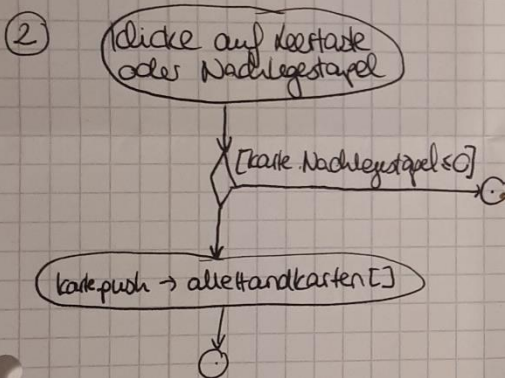 2
klicke auf Leertaste
oder Nachlegestapel
[karte.Nachlegestapel ≤ 0]
karte.push → alleHandkarten[]